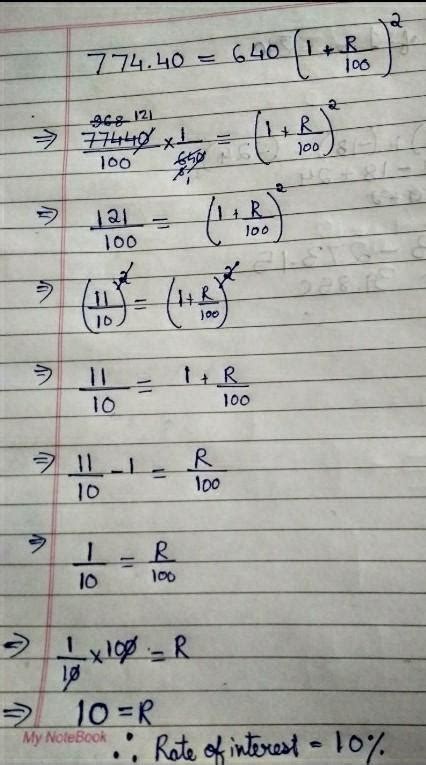 774.40 = 640 (1 + R/100)²
⇒ 968 121
77440/100 × 1/640 = (1 + R/100)²
8
1
⇒ 121/100 = (1 + R/100)²
⇒ (11/10)² = (1 + R/100)²
⇒ 11/10 = 1 + R/100
⇒ 11/10 - 1 = R/100
⇒ 1/10 = R/100
⇒ 1/10 × 100 = R
⇒ 10 = R
My NoteBook
∴ Rate of interest = 10%